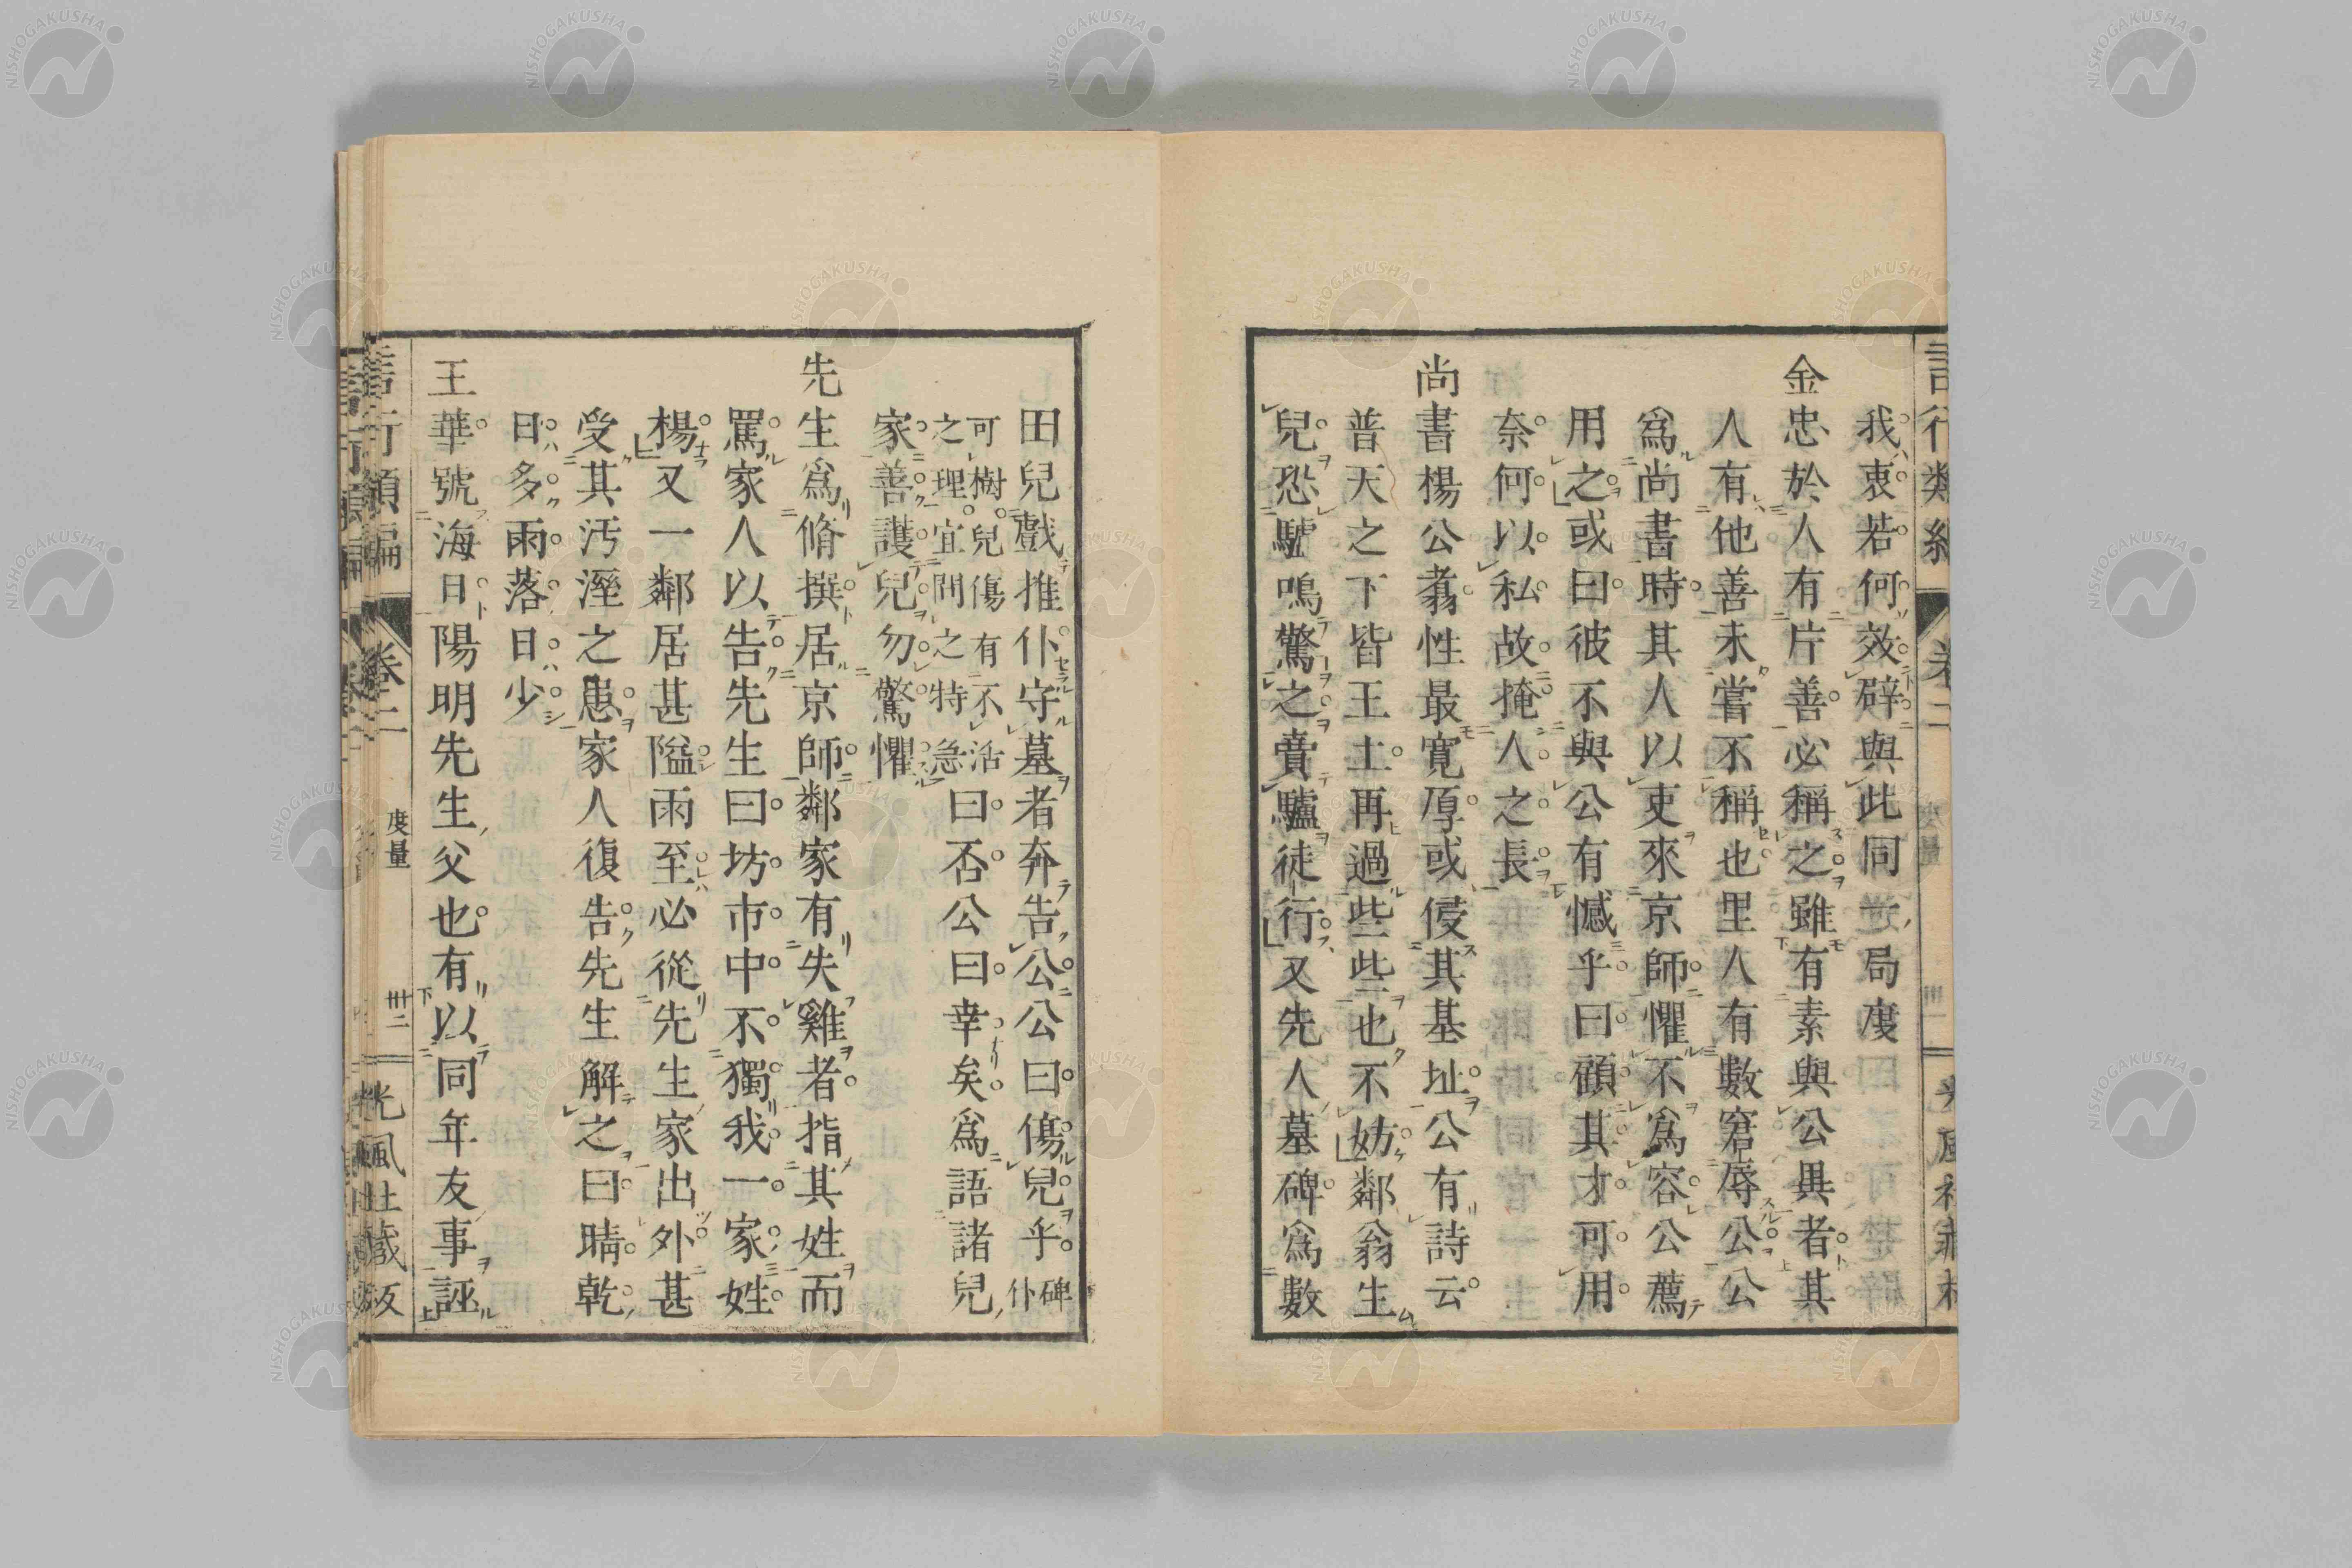 我衷若何效辟與此同一局度
金忠於人有片善必稱之雖有素與公異者其
人有他善未嘗不稱也里人有數窘辱公公
爲尚書時其人以吏來京師懼不爲容公薦
用之或曰彼不與公有憾乎曰顧其才可用
奈何以私故掩人之長
尚書楊公翥性最寬厚或侵其基址公有詩云
普天之下皆王土再過些些也不妨鄰翁生
兒恐驢鳴驚之賣驢徒行又先人墓碑爲數
田兒戲推仆守墓者奔告公公曰傷兒乎碑仆
可樹兒傷有不活
之理宜問之特急
曰否公曰幸矣爲語諸兒
家善護兒勿驚懼
先生爲脩撰居京師鄰家有失雞者指其姓而
罵家人以告先生曰坊市中不獨我一家姓
楊又一鄰居甚隘雨至必從先生家出外甚
受其汚溼之患家人復告先生解之曰晴乾
日多雨落日少
王華號海日陽明先生父也有以同年友事誣
言行類編 卷二 度量 卌二 光風社藏板